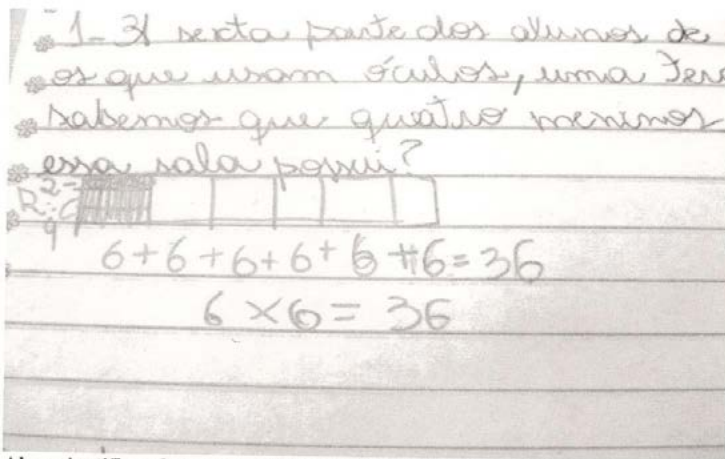 1- A sexta parte dos alunos de
os que usam óculos, uma Terç
sabemos que quatro meninos
essa sala possui?
2
R: 6
4
6+6+6+6+6+6=36
6×6=36